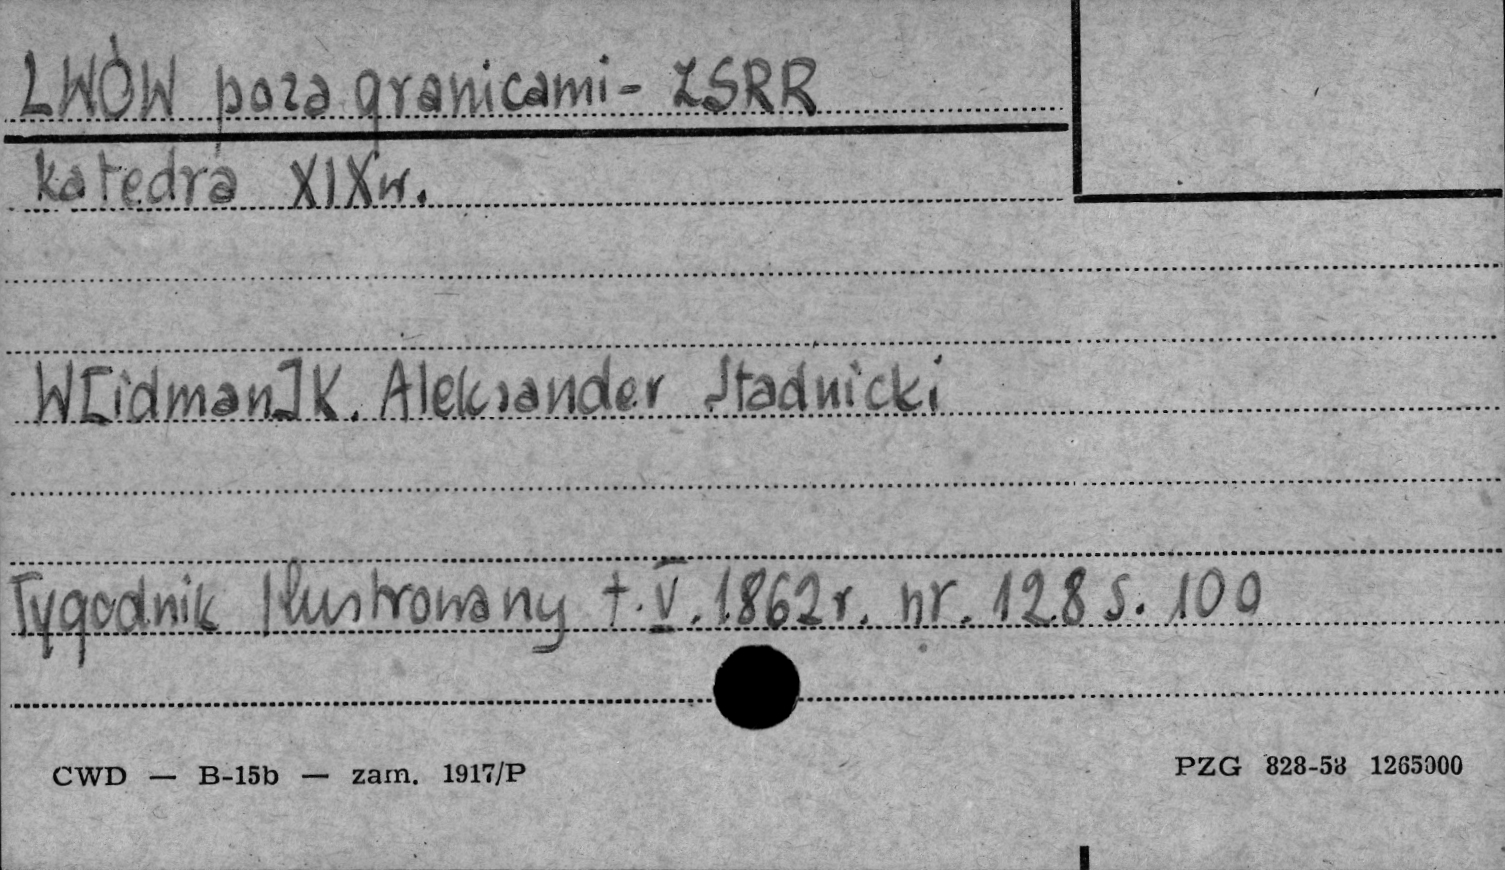 LWÓW poza granicami - ZSRR
katedra XIX w.
W[idman] K. Aleksander Stadnicki
Tygodnik Ilustrowany t. V. 1862 r. nr. 128 s. 100
CWD — B-15b — zam. 1917/P
PZG 828-58 1265000